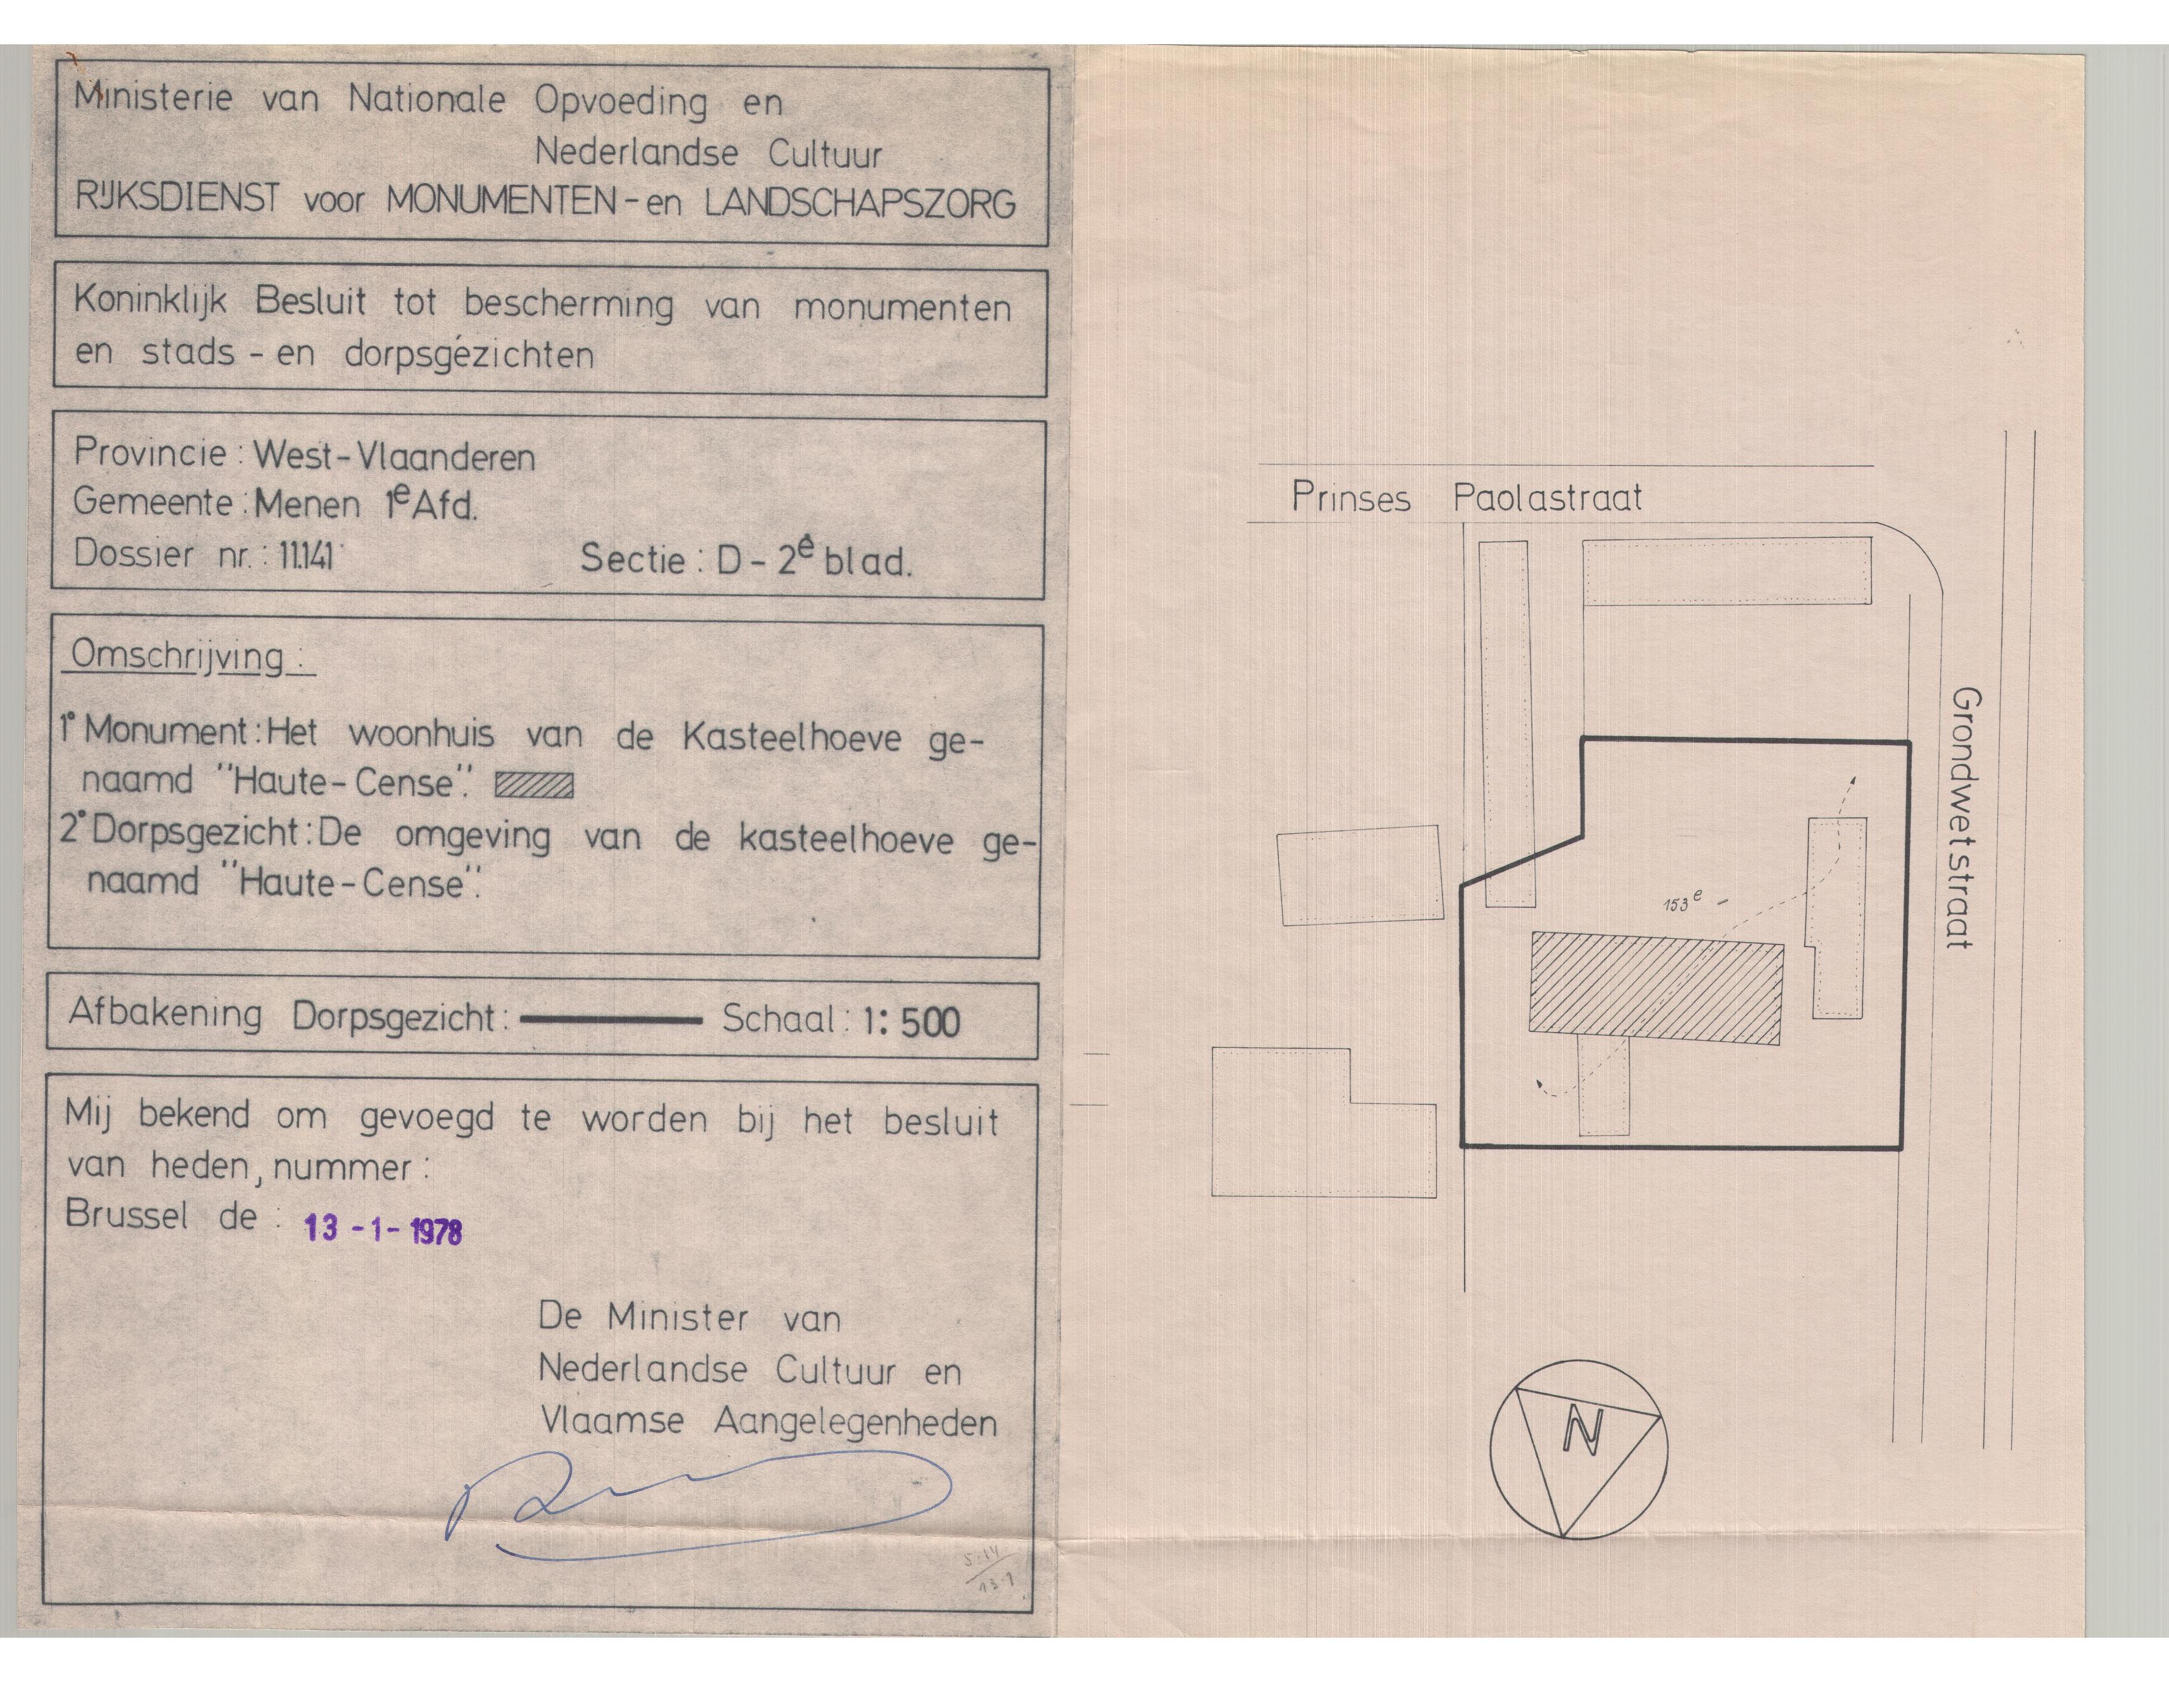 Ministerie van Nationale Opvoeding en
Nederlandse Cultuur
RIJKSDIENST voor MONUMENTEN-en LANDSCHAPSZORG
Koninklijk Besluit tot bescherming van monumenten
en stads-en dorpsgézichten
Provincie: West-Vlaanderen
Gemeente: Menen 1e Afd.
Dossier nr.: 11.141 Sectie: D-2e blad.
Omschrijving:
1° Monument: Het woonhuis van de Kasteelhoeve ge-
naamd "Haute-Cense".
2° Dorpsgezicht: De omgeving van de kasteelhoeve ge-
naamd "Haute-Cense".
Afbakening Dorpsgezicht: Schaal: 1:500
Mij bekend om gevoegd te worden bij het besluit
van heden, nummer:
Brussel de: 13-1-1978
De Minister van
Nederlandse Cultuur en
Vlaamse Aangelegenheden
5.14
13.1
Prinses Paolastraat
Grondwetstraat
153e -
N